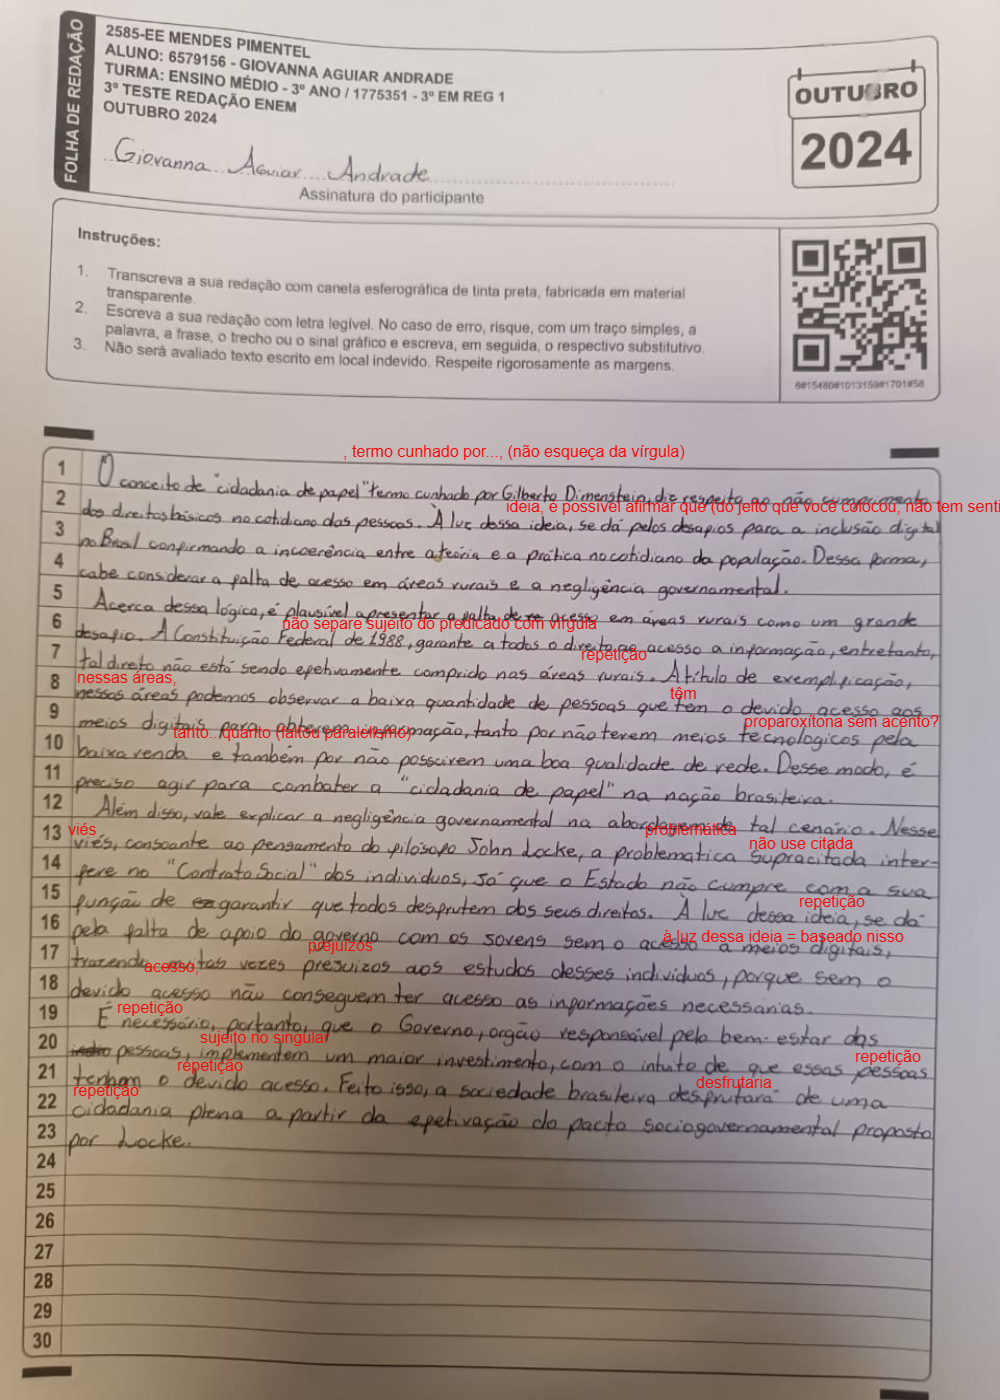 FOLHA DE REDAÇÃO
2585-EE MENDES PIMENTEL
ALUNO: 6579156 - GIOVANNA AGUIAR ANDRADE
TURMA: ENSINO MÉDIO - 3º ANO / 1775351 - 3º EM REG 1
3º TESTE REDAÇÃO ENEM
OUTUBRO 2024
Giovanna Aguiar Andrade
Assinatura do participante
OUTUBRO
2024
Instruções:
1. Transcreva a sua redação com caneta esferográfica de tinta preta, fabricada em material
transparente.
2. Escreva a sua redação com letra legível. No caso de erro, risque, com um traço simples, a
palavra, a frase, o trecho ou o sinal gráfico e escreva, em seguida, o respectivo substitutivo.
3. Não será avaliado texto escrito em local indevido. Respeite rigorosamente as margens.
6#15480#1013159#1701#58
, termo cunhado por..., (não esqueça da vírgula)
1 O conceito de "cidadania de papel" termo cunhado por Gilberto Dimenstein, diz respeito ao não cumprimento
ideia, é possível afirmar que (do jeito que você colocou, não tem senti
2 dos direitos básicos no cotidiano das pessoas. À luz dessa ideia, se dá pelos desafios para a inclusão digital
3 no Brasil confirmando a incoerência entre a teoria e a prática no cotidiano da população. Dessa forma,
4 cabe considerar a falta de acesso em áreas rurais e a negligência governamental.
5 Acerca dessa lógica, é plausível apresentar a falta de acesso em áreas rurais como um grande
não separe sujeito do predicado com vírgula
6 desafio. A Constituição Federal de 1988, garante a todos o direito ao acesso a informação, entretanto,
repetição
7 tal direito não está sendo efetivamente comprido nas áreas rurais. A título de exemplificação,
nessas áreas,
têm
8 nessas áreas podemos observar a baixa quantidade de pessoas que tem o devido acesso aos
proparoxítona sem acento?
9 meios digitais para obterem informação, tanto por não terem meios tecnologicos pela
tanto...quanto (faltou paralelismo)
10 baixa renda e também por não possuirem uma boa qualidade de rede. Desse modo, é
11 preciso agir para combater a "cidadania de papel" na nação brasileira.
12 Além disso, vale explicar a negligência governamental na abordagem de tal cenário. Nesse
viés
problemática
não use citada
13 viés, consoante ao pensamento do filósofo John Locke, a problematica supracitada inter-
14 fere no "Contrato Social" dos indivíduos, já que o Estado não cumpre com a sua
15 função de garantir que todos desfrutem dos seus direitos. À luz dessa ideia, se dá
repetição
16 pela falta de apoio do governo com os jovens sem o acesso a meios digitais,
à luz dessa ideia = baseado nisso
prejuízos
17 trazendo muitas vezes prejuizos aos estudos desses indivíduos, porque sem o
acesso,
18 devido acesso não conseguem ter acesso as informações necessárias.
repetição
19 É necessário, portanto, que o Governo, orgão responsável pelo bem-estar das
sujeito no singular
20 pessoas, implementem um maior investimento, com o intuito de que essas pessoas
repetição
repetição
21 tenham o devido acesso. Feito isso, a sociedade brasileira desfrutará de uma
desfrutaria
repetição
22 cidadania plena a partir da efetivação do pacto sociogovernamental proposto
23 por Locke.
24
25
26
27
28
29
30